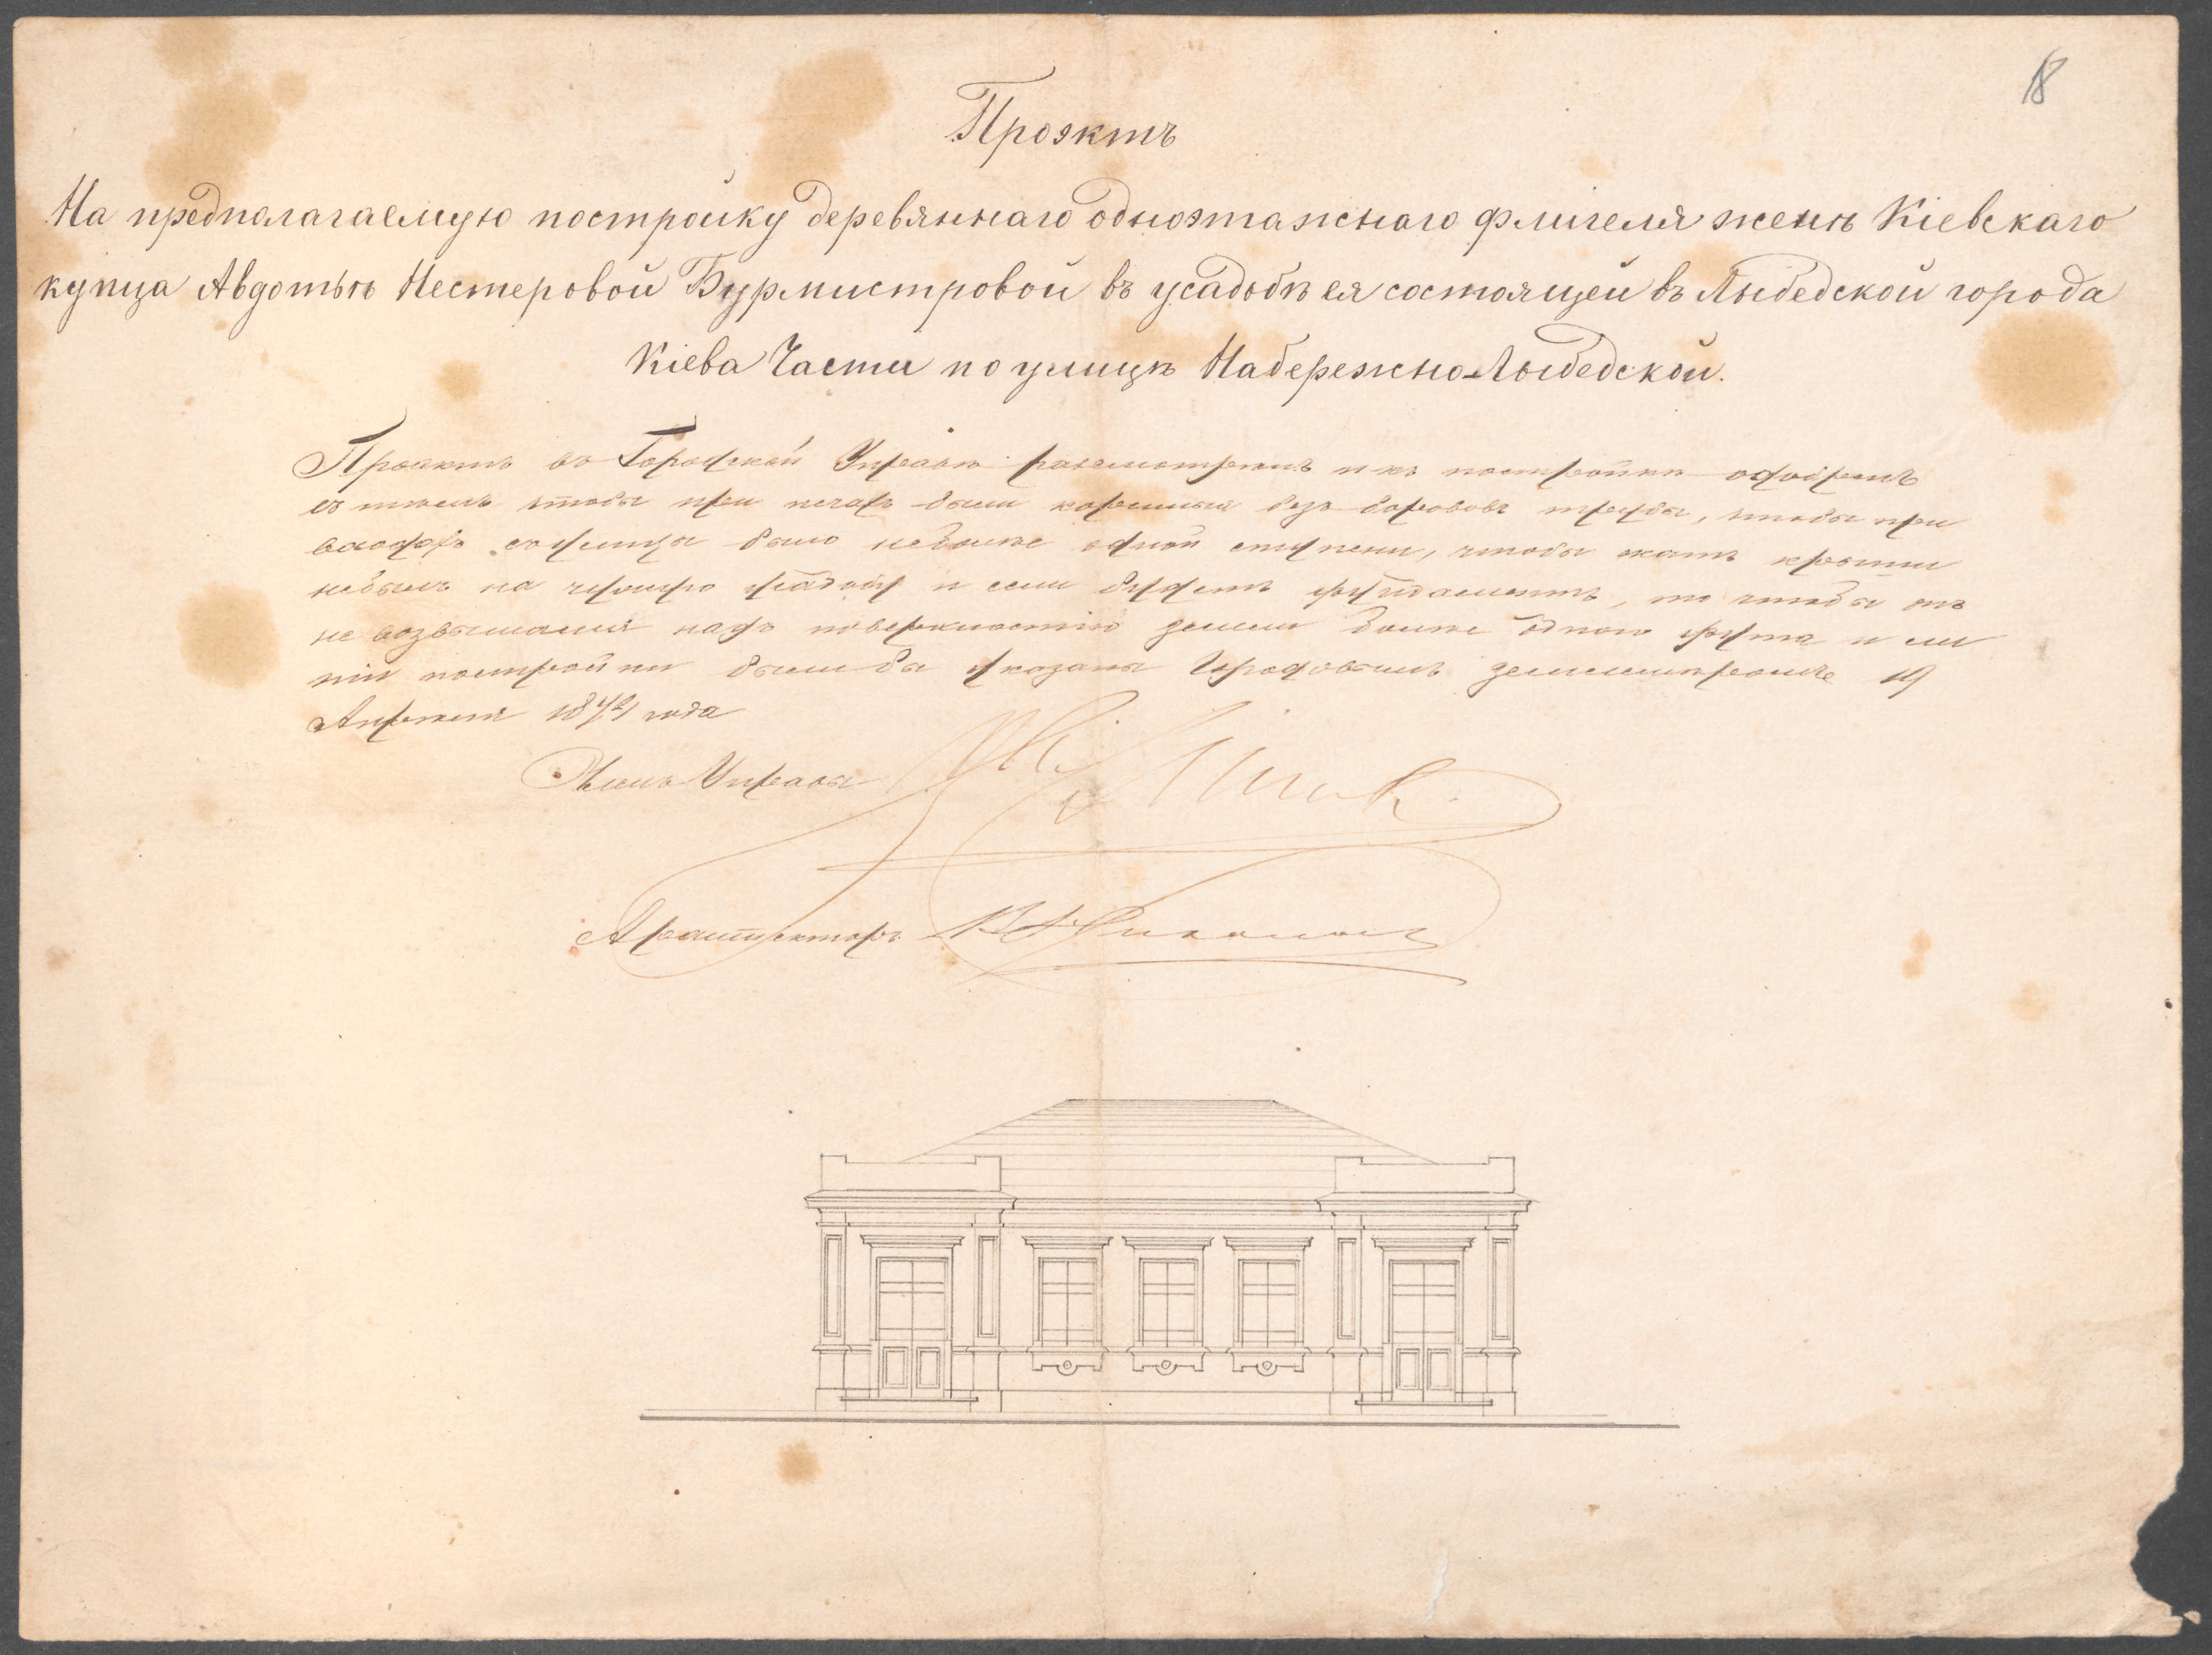 18
Проэктъ
На предполагаемую постройку деревяннаго одноэтажнаго флигеля женѣ Кіевскаго
купца Авдотьѣ Нестеровой Бурмистровой въ усадьбѣ ея состоящей въ Лыбедской города
Кіева Части по улицѣ Набережно-Лыбедской.
Проэктъ въ Городской Управѣ разсмотренъ и къ постройкѣ одобренъ
съ тѣмъ чтобы при печахъ были коренныя безъ борововъ трубы, чтобы при
входѣ съ улицы было неболѣе одной ступени, чтобы скатъ крыши
небылъ на чужую усадьбу и если будетъ фундаментъ, то чтобы онъ
не возвышался надъ поверхностію земли болѣе одного фута и ли
ніи постройки были бы указаны Городовымъ землемѣромъ 19
Апрѣля года
Членъ Управы
Архитекторъ